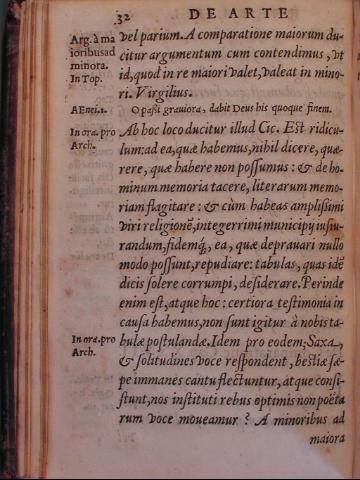 32 DE ARTE
Arg. à ma
ioribus ad
minora.
In Top.
vel parium. A comparatione maiorum du-
citur argumentum cum contendimus, vt
id, quod in re maiori valet, valeat in mino-
ri. Virgilius.
AEnei. 1.
O paßi grauiora, dabit Deus his quoque finem.
In ora. pro
Arch.
Ab hoc loco ducitur illud Cic. Est ridicu-
lum: ad ea, quæ habemus, nihil dicere, quæ-
rere, quæ habere non possumus: & de ho-
minum memoria tacere, literarum memo-
riam flagitare: & cùm habeas amplißimi
viri religionē, integerrimi municipij iusiu-
randum, fidemq́;, ea, quæ deprauari nullo
modo possunt, repudiare: tabulas, quas idē
dicis solere corrumpi, desiderare. Perinde
enim est, atque hoc: certiora testimonia in
causa habemus, non sunt igitur à nobis ta-
In ora. pro
Arch.
bulæ postulandæ. Idem pro eodem; Saxa,
& solitudines voce respondent, bestiæ sæ-
pe immanes cantu flectuntur, atque consi-
stunt, nos instituti rebus optimis non poëta
rum voce moueamur? A minoribus ad
maiora